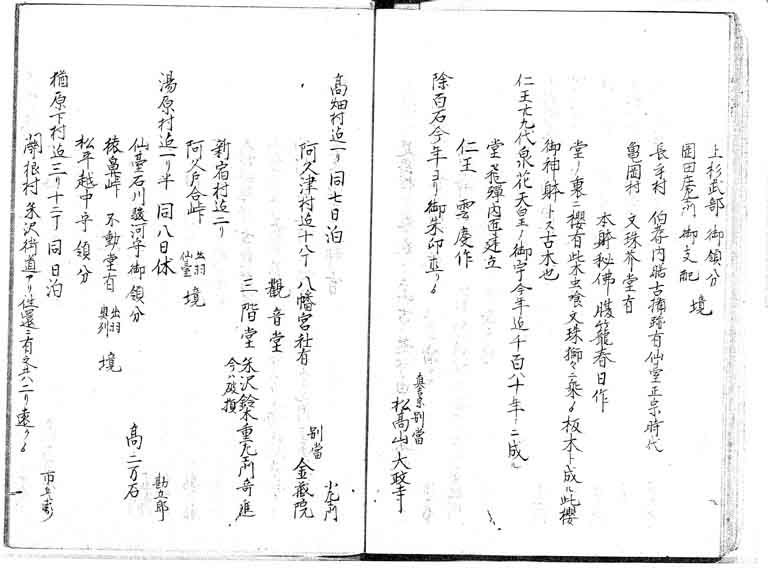 上杉武部御領分
岡田庄五郎御支配 境
長手村 伯耆内膳古摘跡有仙臺正宗時代
亀岡村 文珠并堂有
本躰秘佛腹籠春日作
堂ノ裏ニ櫻有此木虫喰文珠獅々ニ乗ル板木ト成ル此櫻
御神躰トス古木也
仁王廿九代泉花天皇ノ御宇今年迄千百八十年ニ成ル
堂ハ飛彈内匠建立
仁王 雲慶作
除百石今年ヨリ御朱印直ル
真言宗別當
松髙山大政寺
髙畑村迄一リ同七日泊
小左衛門
阿久津村迄十八丁八幡宮社有
別當
金蔵院
觀音堂
三階堂 朱沢鈴木重左エ門寄進
今ハ破損
新宿村迄二リ
阿久戸合峠 出羽
仙臺 境
湯原村迄一リ半同八日休
勘五郎
仙臺石川駿河守御領分
髙二万石
猿鼻峠 不動堂有 出羽
奥列 境
松平越中守領分
楢原下村迄三リ十二丁同日泊
市兵衛
関根村 朱沢街道アリ往還ニ有之共ハ二リ遠クル